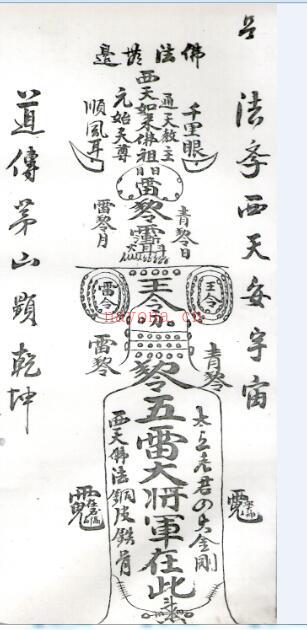 佛法無邊
法季西天安宇宙
千里眼
通天教主
西天如來佛祖
元始天尊
順風耳
道傳茅山顯乾坤
日 日
雷
青黎日
黎
雷黎月
王令
雷令
王令
nayona.cn
青黎
雷黎
黎五雷大將軍在此
太上老君の大金剛
西天佛法銅皮鉄骨